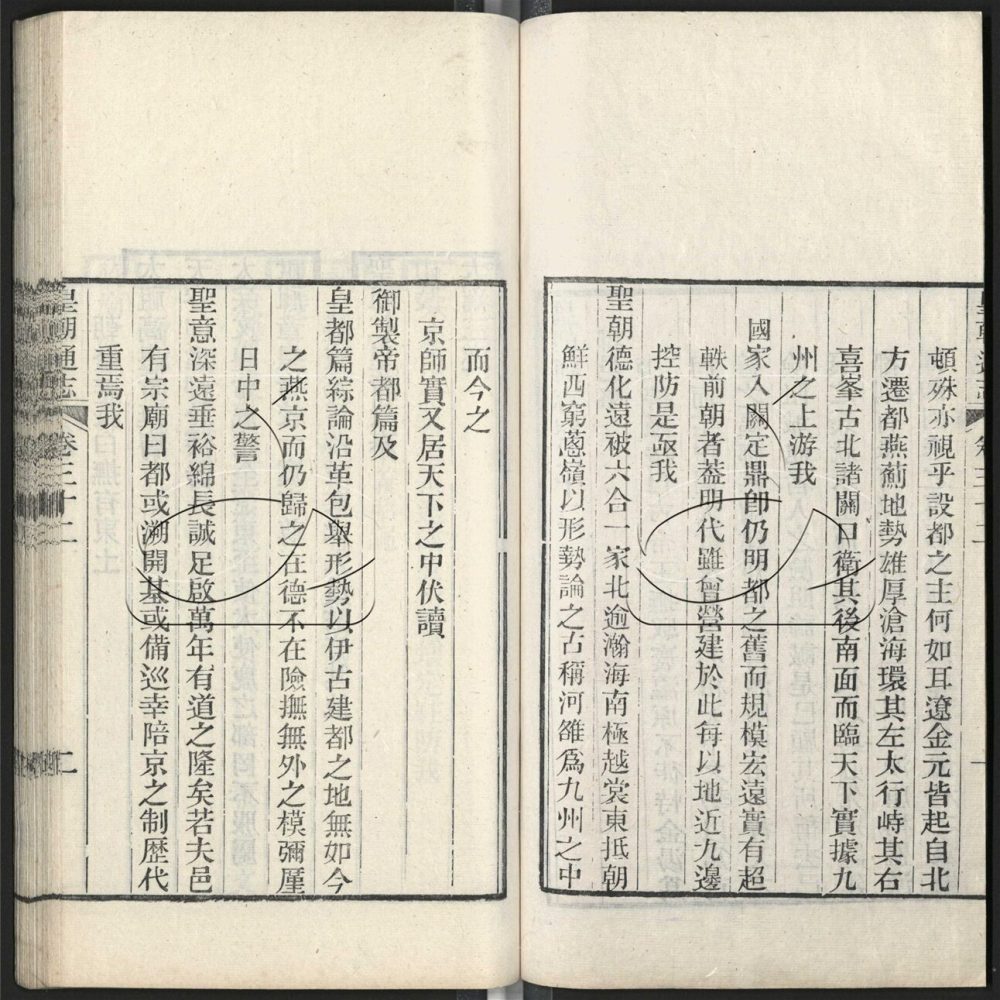 頓殊亦視乎設都之主何如耳遼金元皆起自北
方遷都燕薊地勢雄厚滄海環其左太行峙其右
喜峯古北諸關口衛其後南面而臨天下實據九
州之上游我
國家入關定鼎卽仍明都之舊而規模宏遠實有超
軼前朝者葢明代雖曾營建於此每以地近九邊
控防是亟我
聖朝德化遠被六合一家北逾瀚海南極越裳東抵朝
鮮西窮蔥嶺以形勢論之古稱河雒爲九州之中
而今之
京師實又居天下之中伏讀
御製帝都篇及
皇都篇綜論沿革包舉形勢以伊古建都之地無如今
之燕京而仍歸之在德不在險撫無外之模彌厪
日中之警
聖意深遠垂裕綿長誠足啟萬年有道之隆矣若夫邑
有宗廟曰都或溯開基或備巡幸陪京之制歷代
重焉我
皇朝通志 卷三十二 二